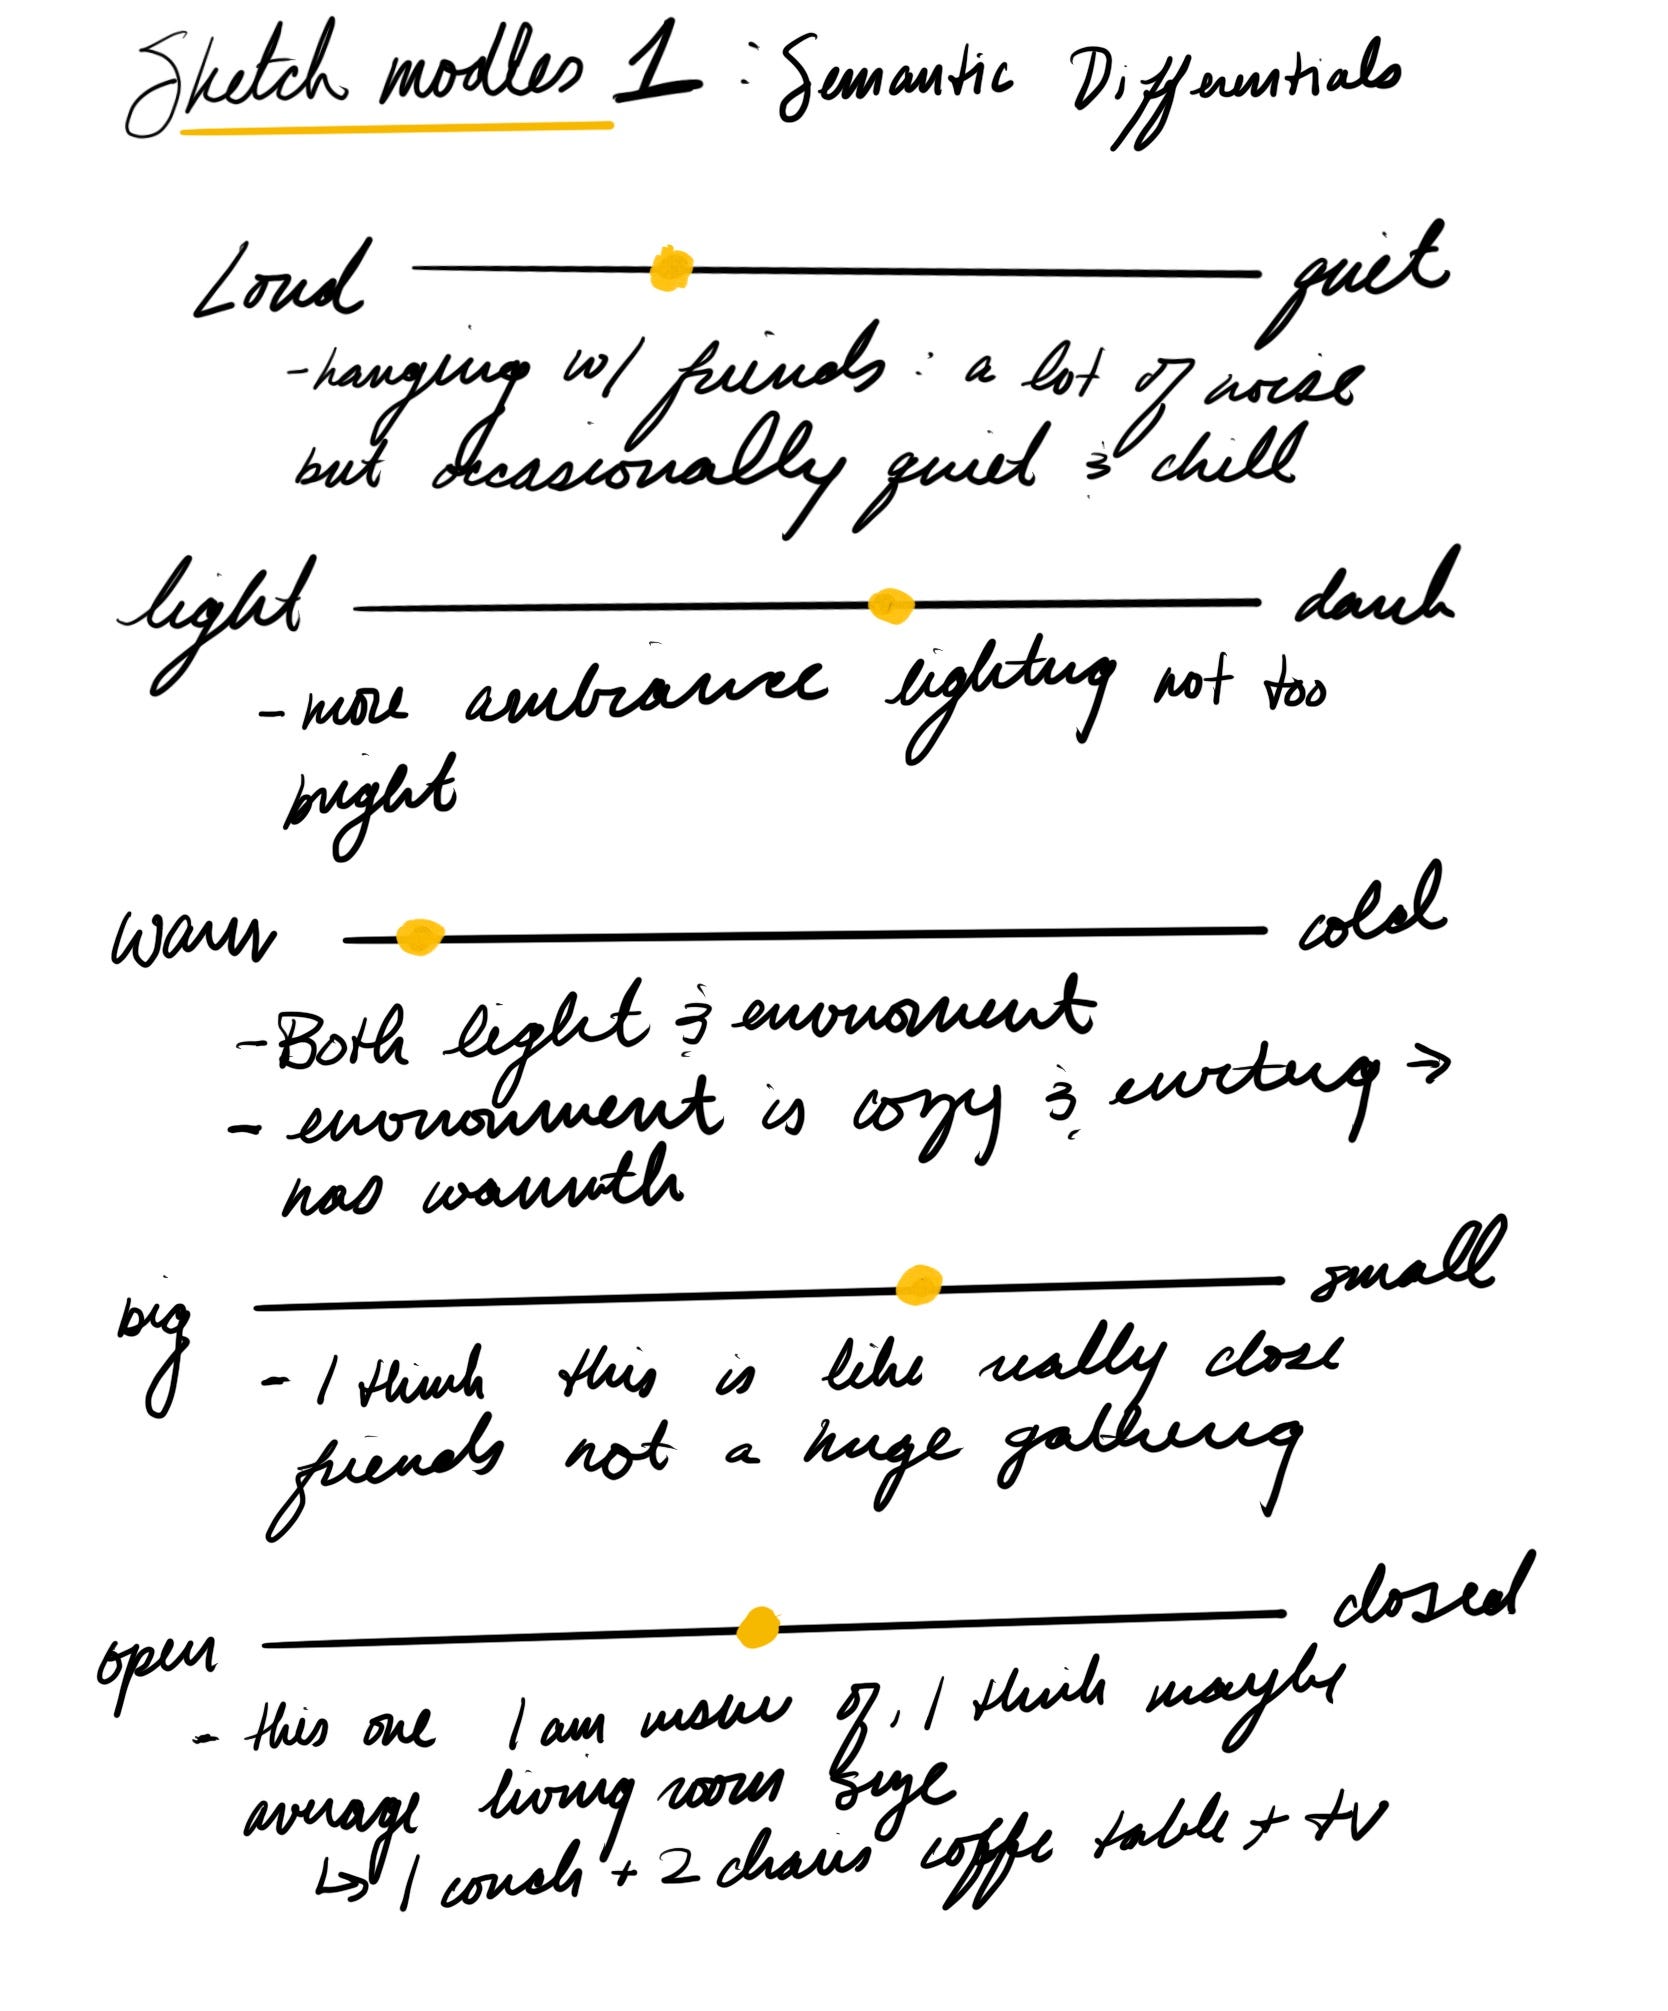 Sketch modles 1 : Semantic Differentials
Loud quiet
- hanging w/ friends : a lot of noise
but occasionally quiet & chill
light dark
- more ambiance lighting not too
bright
warm cold
- Both light & environment
- environment is cozy & inviting →
has warmth
big small
- I think this is like really close
friends not a huge gathering
open closed
- this one I am unsure of, I think maybe
average living room size
↳ 1 couch + 2 chairs coffe table + tv